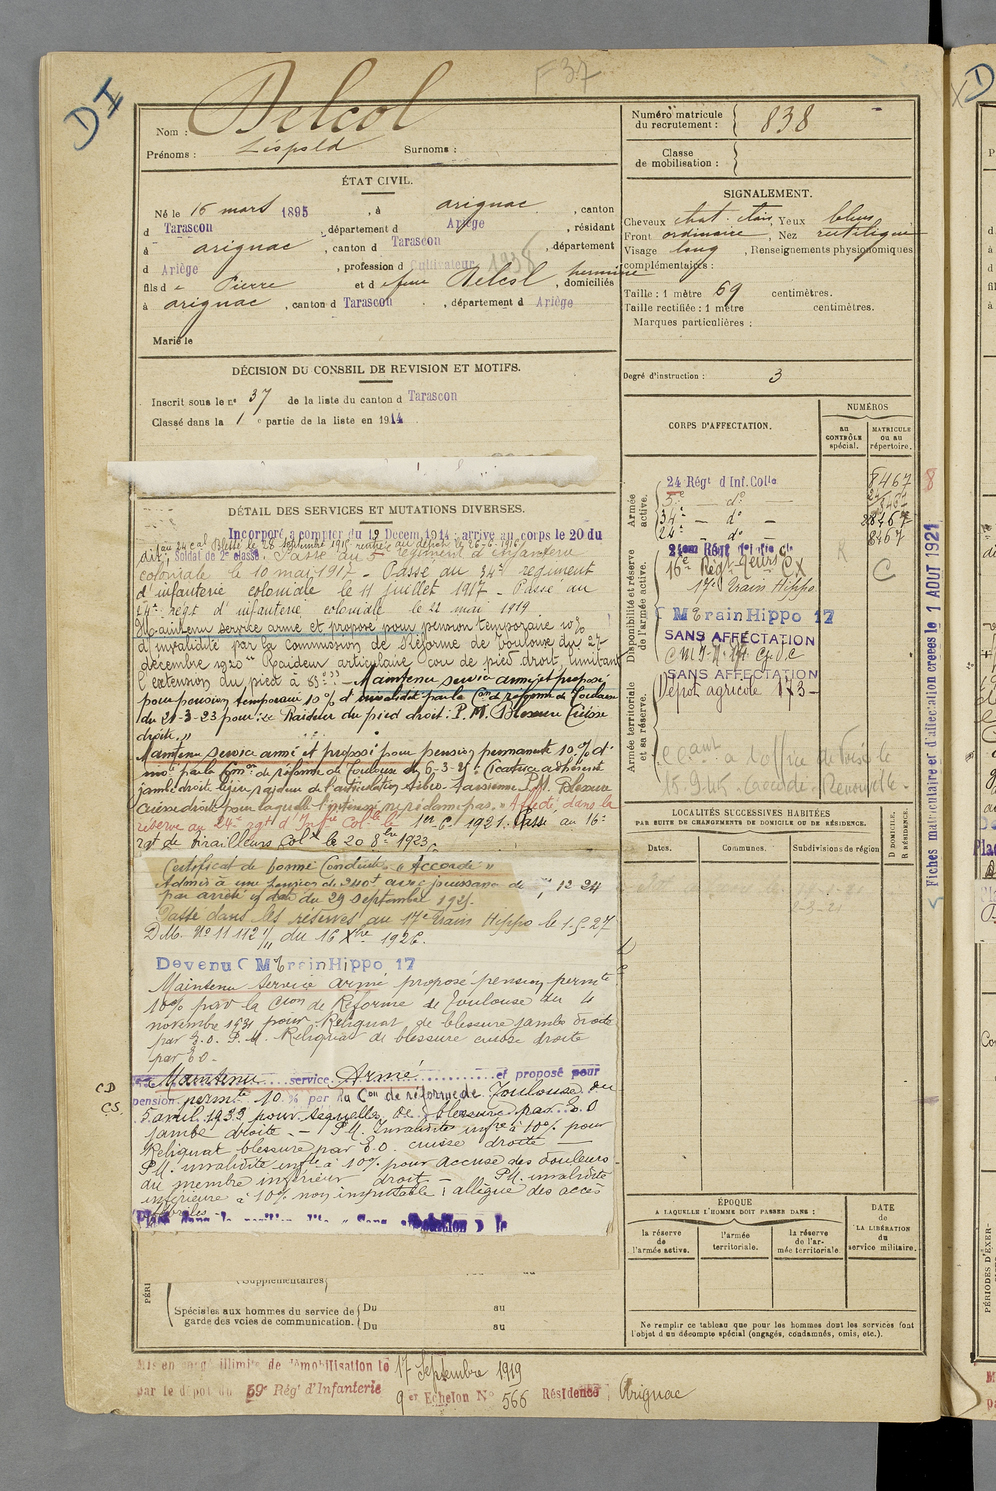 DI
F 37
Nom : Delcol
Prénoms : Léopold Surnoms :
Numéro matricule du recrutement : 838
Classe de mobilisation :
ÉTAT CIVIL.
Né le 15 mars 1895, à arignac, canton
d Tarascon, département d Ariège, résidant
à arignac, canton d Tarascon, département
d Ariège, profession d Cultivateur
fils de Pierre et de feue Delcol hermine, domiciliés
à arignac, canton d Tarascon, département d Ariège
Marié le
SIGNALEMENT.
Cheveux chat. clair, Yeux bleus
Front ordinaire, Nez rectiligne
Visage long, Renseignements physionomiques
complémentaires :
Taille : 1 mètre 69 centimètres.
Taille rectifiée : 1 mètre centimètres.
Marques particulières :
Degré d'instruction : 3
DÉCISION DU CONSEIL DE REVISION ET MOTIFS.
Inscrit sous le n° 37 de la liste du canton d Tarascon
Classé dans la 1e partie de la liste en 1914
DÉTAIL DES SERVICES ET MUTATIONS DIVERSES.
Incorporé à compter du 19 Décem. 1914 arrivé au corps le 20 du
dit, Soldat de 2e classe. Passé au 5e régiment d'infanterie
coloniale le 10 mai 1917 - Passé au 34e régiment
d'infanterie coloniale le 11 juillet 1917 - Passé au
24e régt d'infanterie coloniale le 22 mars 1919
Maintenu service armé et proposé pour pension temporaire 10%
d'invalidité par la Commission de Réforme de Toulouse du 27
décembre 1920 "Raideur articulaire cou de pied droit, limitant
l'extension du pied à 85° " - Maintenu service armé et proposé
pour pension temporaire 10% d'invalidité par la Con de réforme de Toulouse
du 21-3-23 pour : Raideur du pied droit. P.M. Blessure Cuisse
droite "
Maintenu service armé et proposé pour pension permanente 10% d'
inv. par la Comon de réforme de Toulouse du 6-3-25 : Cicatrice adhérente
jambe droite légère raideur de l'articulation tibio-tarsienne P.M. Blessure
Cuisse droite pour laquelle l'intéressé ne réclame pas. " Affecté dans la
réserve au 24e rgt d'Infrie Colle le 1er 6. 1921. Passé au 16e
rgt de Tirailleurs Colx le 20 8bre 1923
Certificat de bonne Conduite "Accordé"
Admis à une pension de 240f avec jouissance de 12 24
par arrêté en date du 29 septembre 1925.
Passé dans les réserves au 17e Train Hippo le 1-5-27
D.M. No 11112 1/11 du 16 Xbre 1926.
Devenu C M Train Hippo 17
Maintenu service armé proposé pension permte
10% par la Cion de Réforme de Toulouse du 4
novembre 1931 pour : Reliquat de blessure jambe droite
par E.O. P.M. Reliquat de blessure cuisse droite
par E.O -
Maintenu service Armé et proposé pour
pension permte 10 % par la Con de réforme de Toulouse du
5 avril 1933 pour séquelles de blessure par E.O
jambe droite. - P.M. Invalidité infre à 10% pour
Reliquat blessure par E.O. cuisse droite -
P.M. invalidité infre à 10% pour accuse des douleurs
du membre inférieur droit - P.M. invalidité
inférieure à 10% non imputable : allègue des accès
fébriles -
CD
CS
Supplémentaires
Spéciales aux hommes du service de garde des voies de communication.
Du au
Du au
CORPS D'AFFECTATION.
NUMÉROS
au CONTRÔLE spécial.
MATRICULE ou au répertoire.
Armée active.
24 Régt d'Inf. Colle 8467
5e do
34e - do -
24e - do - 8467
Disponibilité et réserve de l'armée active.
24em Régt d'Infie Cle
16e Régt Tirrs Cx
17e Train Hippo.
C M Train Hippo 17
SANS AFFECTATION
SANS AFFECTATION
Dépôt agricole 173 -
Armée territoriale et sa réserve.
LOCALITÉS SUCCESSIVES HABITÉES
PAR SUITE DE CHANGEMENTS DE DOMICILE OU DE RÉSIDENCE.
Dates.
Communes.
Subdivisions de région
D DOMICILE.
R RÉSIDENCE.
ÉPOQUE
A LAQUELLE L'HOMME DOIT PASSER DANS :
la réserve de l'armée active.
l'armée territoriale.
la réserve de l'armée territoriale
DATE de LA LIBÉRATION du service militaire.
Ne remplir ce tableau que pour les hommes dont les services font
l'objet d'un décompte spécial (engagés, condamnés, omis, etc.).
Fiches matriculaire et d'affectation créées le 1 AOUT 1921
Mis en congé illimité de démobilisation le 17 Septembre 1919
par le dépôt du 59e Régt d'Infanterie
9er Echelon No 566 Résidence Arignac